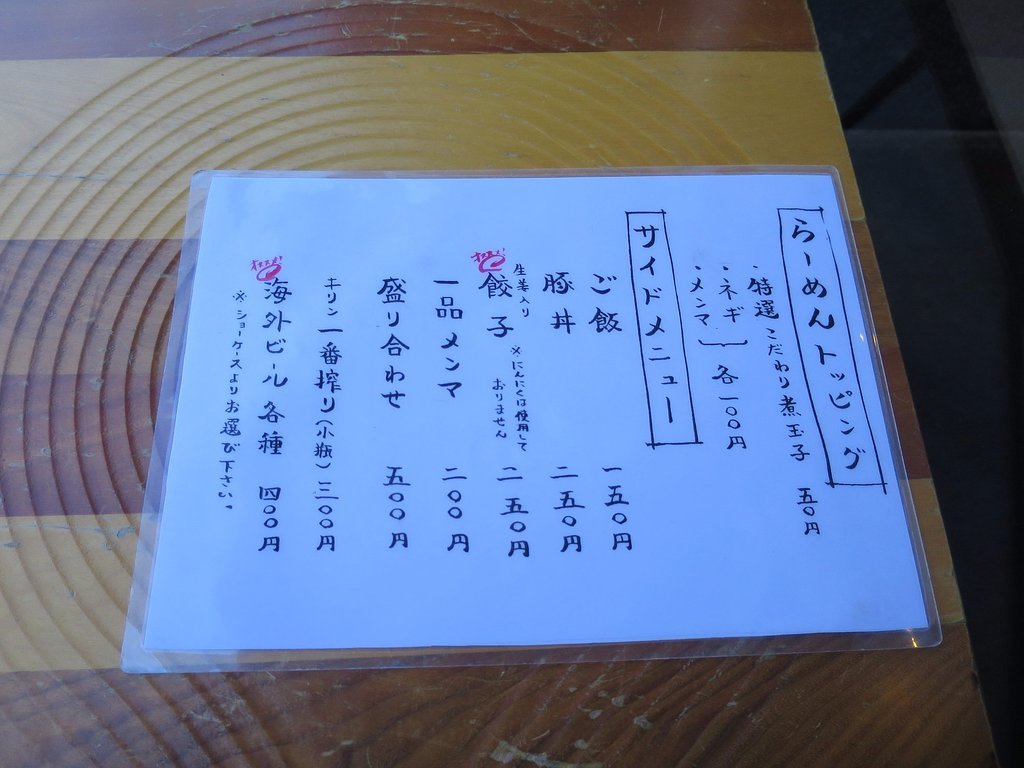 らーめんトッピング
・特選こだわり煮玉子 五〇円
・ネギ
・メンマ
各一〇〇円
サイドメニュー
ご飯 一五〇円
豚丼 二五〇円
生姜入り
オススメ!
餃子 ※にんにくは使用しておりません 二五〇円
一品メンマ 二〇〇円
盛り合わせ 五〇〇円
キリン一番搾り(小瓶) 三〇〇円
オススメ!
海外ビール各種 四〇〇円
※ショーケースよりお選び下さい。